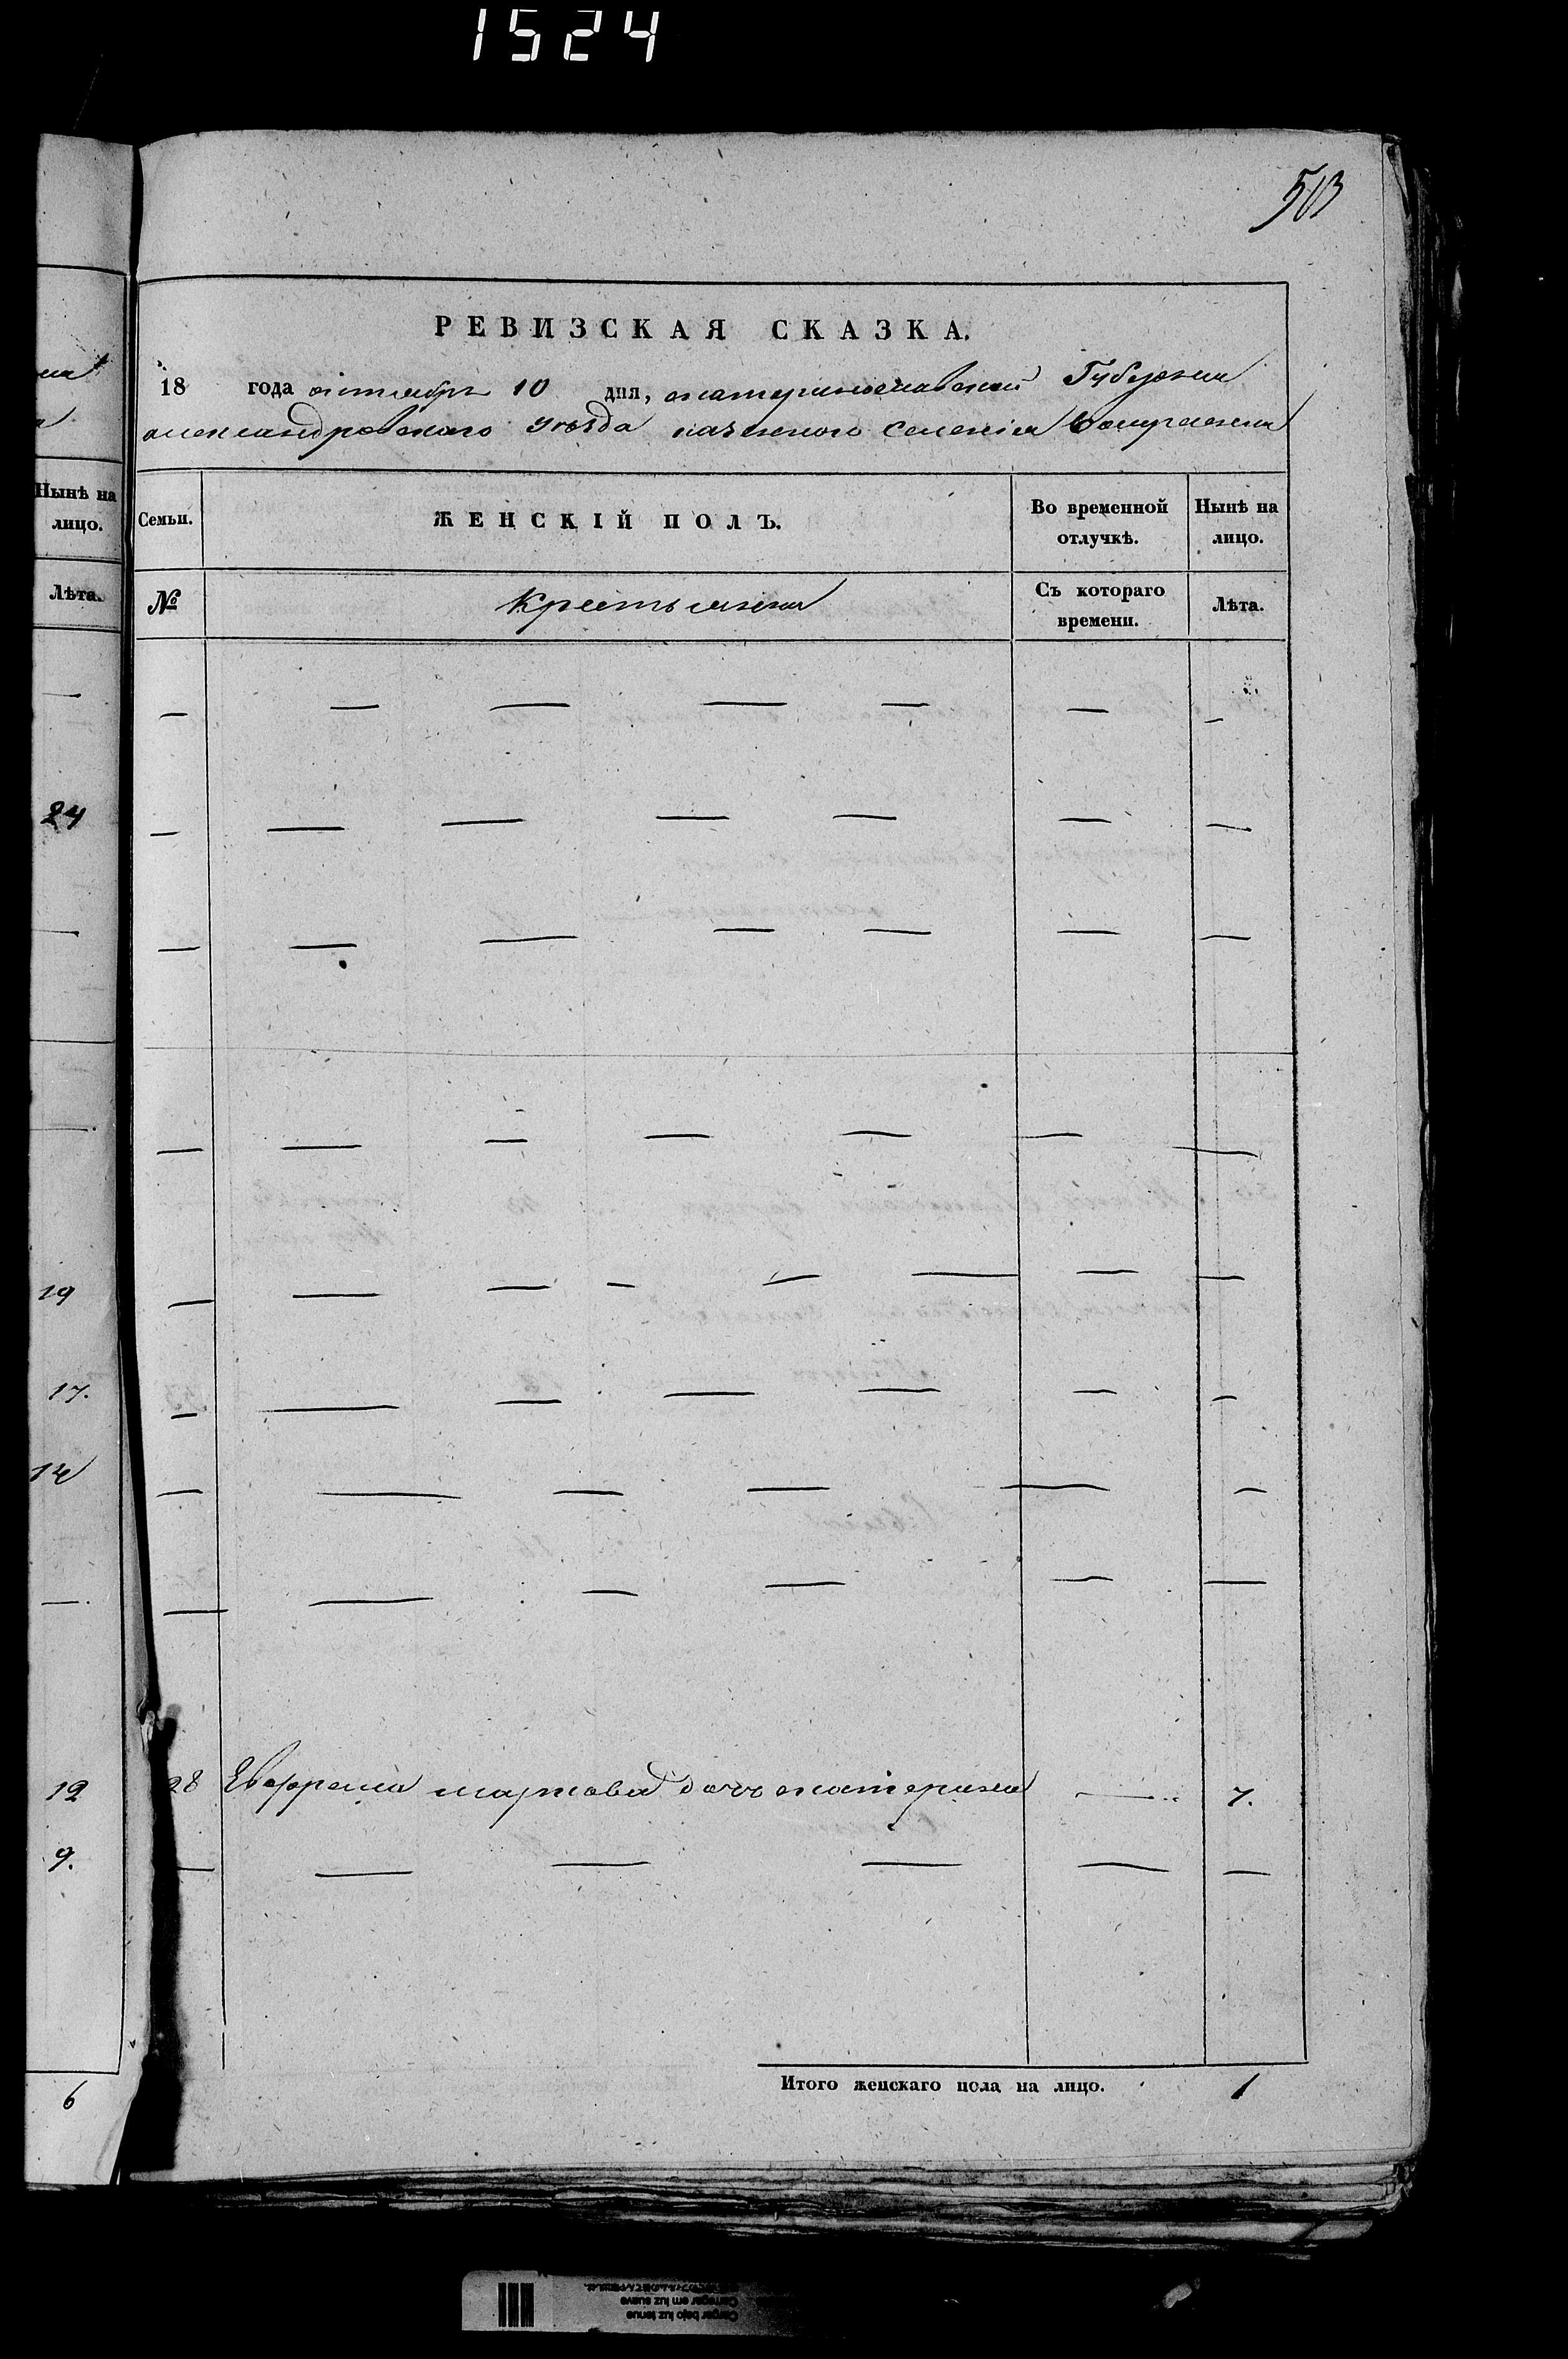 1524
503
РЕВИЗСКАЯ СКАЗКА.
18 года октября 10 дня, екатеринославской Губернии
александровского уезда казенного селения
Нынѣ на лицо.
Семьи.
ЖЕНСКІЙ ПОЛЪ.
Во временной отлучкѣ.
Нынѣ на лицо.
Лѣта.
№
Крестьяне
Съ котораго времени.
Лѣта.
24
19
17.
14
28 мартова дочь екатерина 7.
12
9.
Итого женскаго пола на лицо. 1
6
Carregar em luz suave
Cargar bajo luz tenue